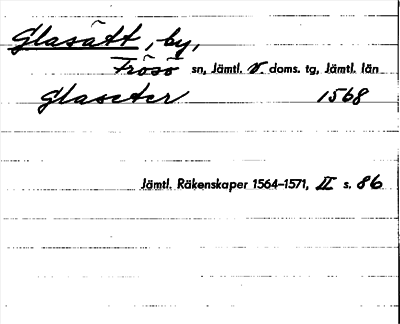 Glasätt, by,
Frösö sn, Jämtl. v. doms. tg, Jämtl. län
Glaseter 1568
Jämtl. Räkenskaper 1564–1571, II s. 86